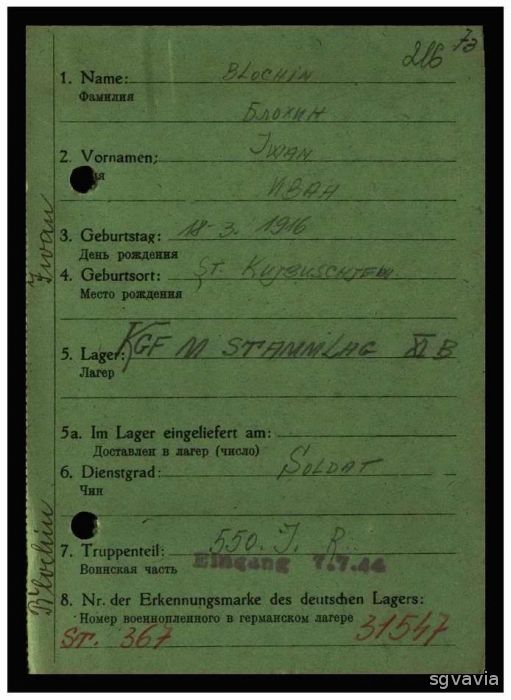 216 7a
1. Name: BLOCHIN
Фамилия
БЛОХИН
2. Vornamen: IWAN
ИВАН
3. Geburtstag: 18-3. 1916
День рождения
4. Geburtsort: ST. KUJBUSCHJEW
Место рождения
5. Lager: KGF M STAMMLAG XI B
Лагер
5a. Im Lager eingeliefert am:
Доставлен в лагер (число)
6. Dienstgrad: SOLDAT
Чин
7. Truppenteil: 550. I. R.
Воинская часть Eingang 7.7.44
8. Nr. der Erkennungsmarke des deutschen Lagers:
Номер военнопленного в германском лагере 31547
ST. 367
Iwan
Blochin
sgvavia